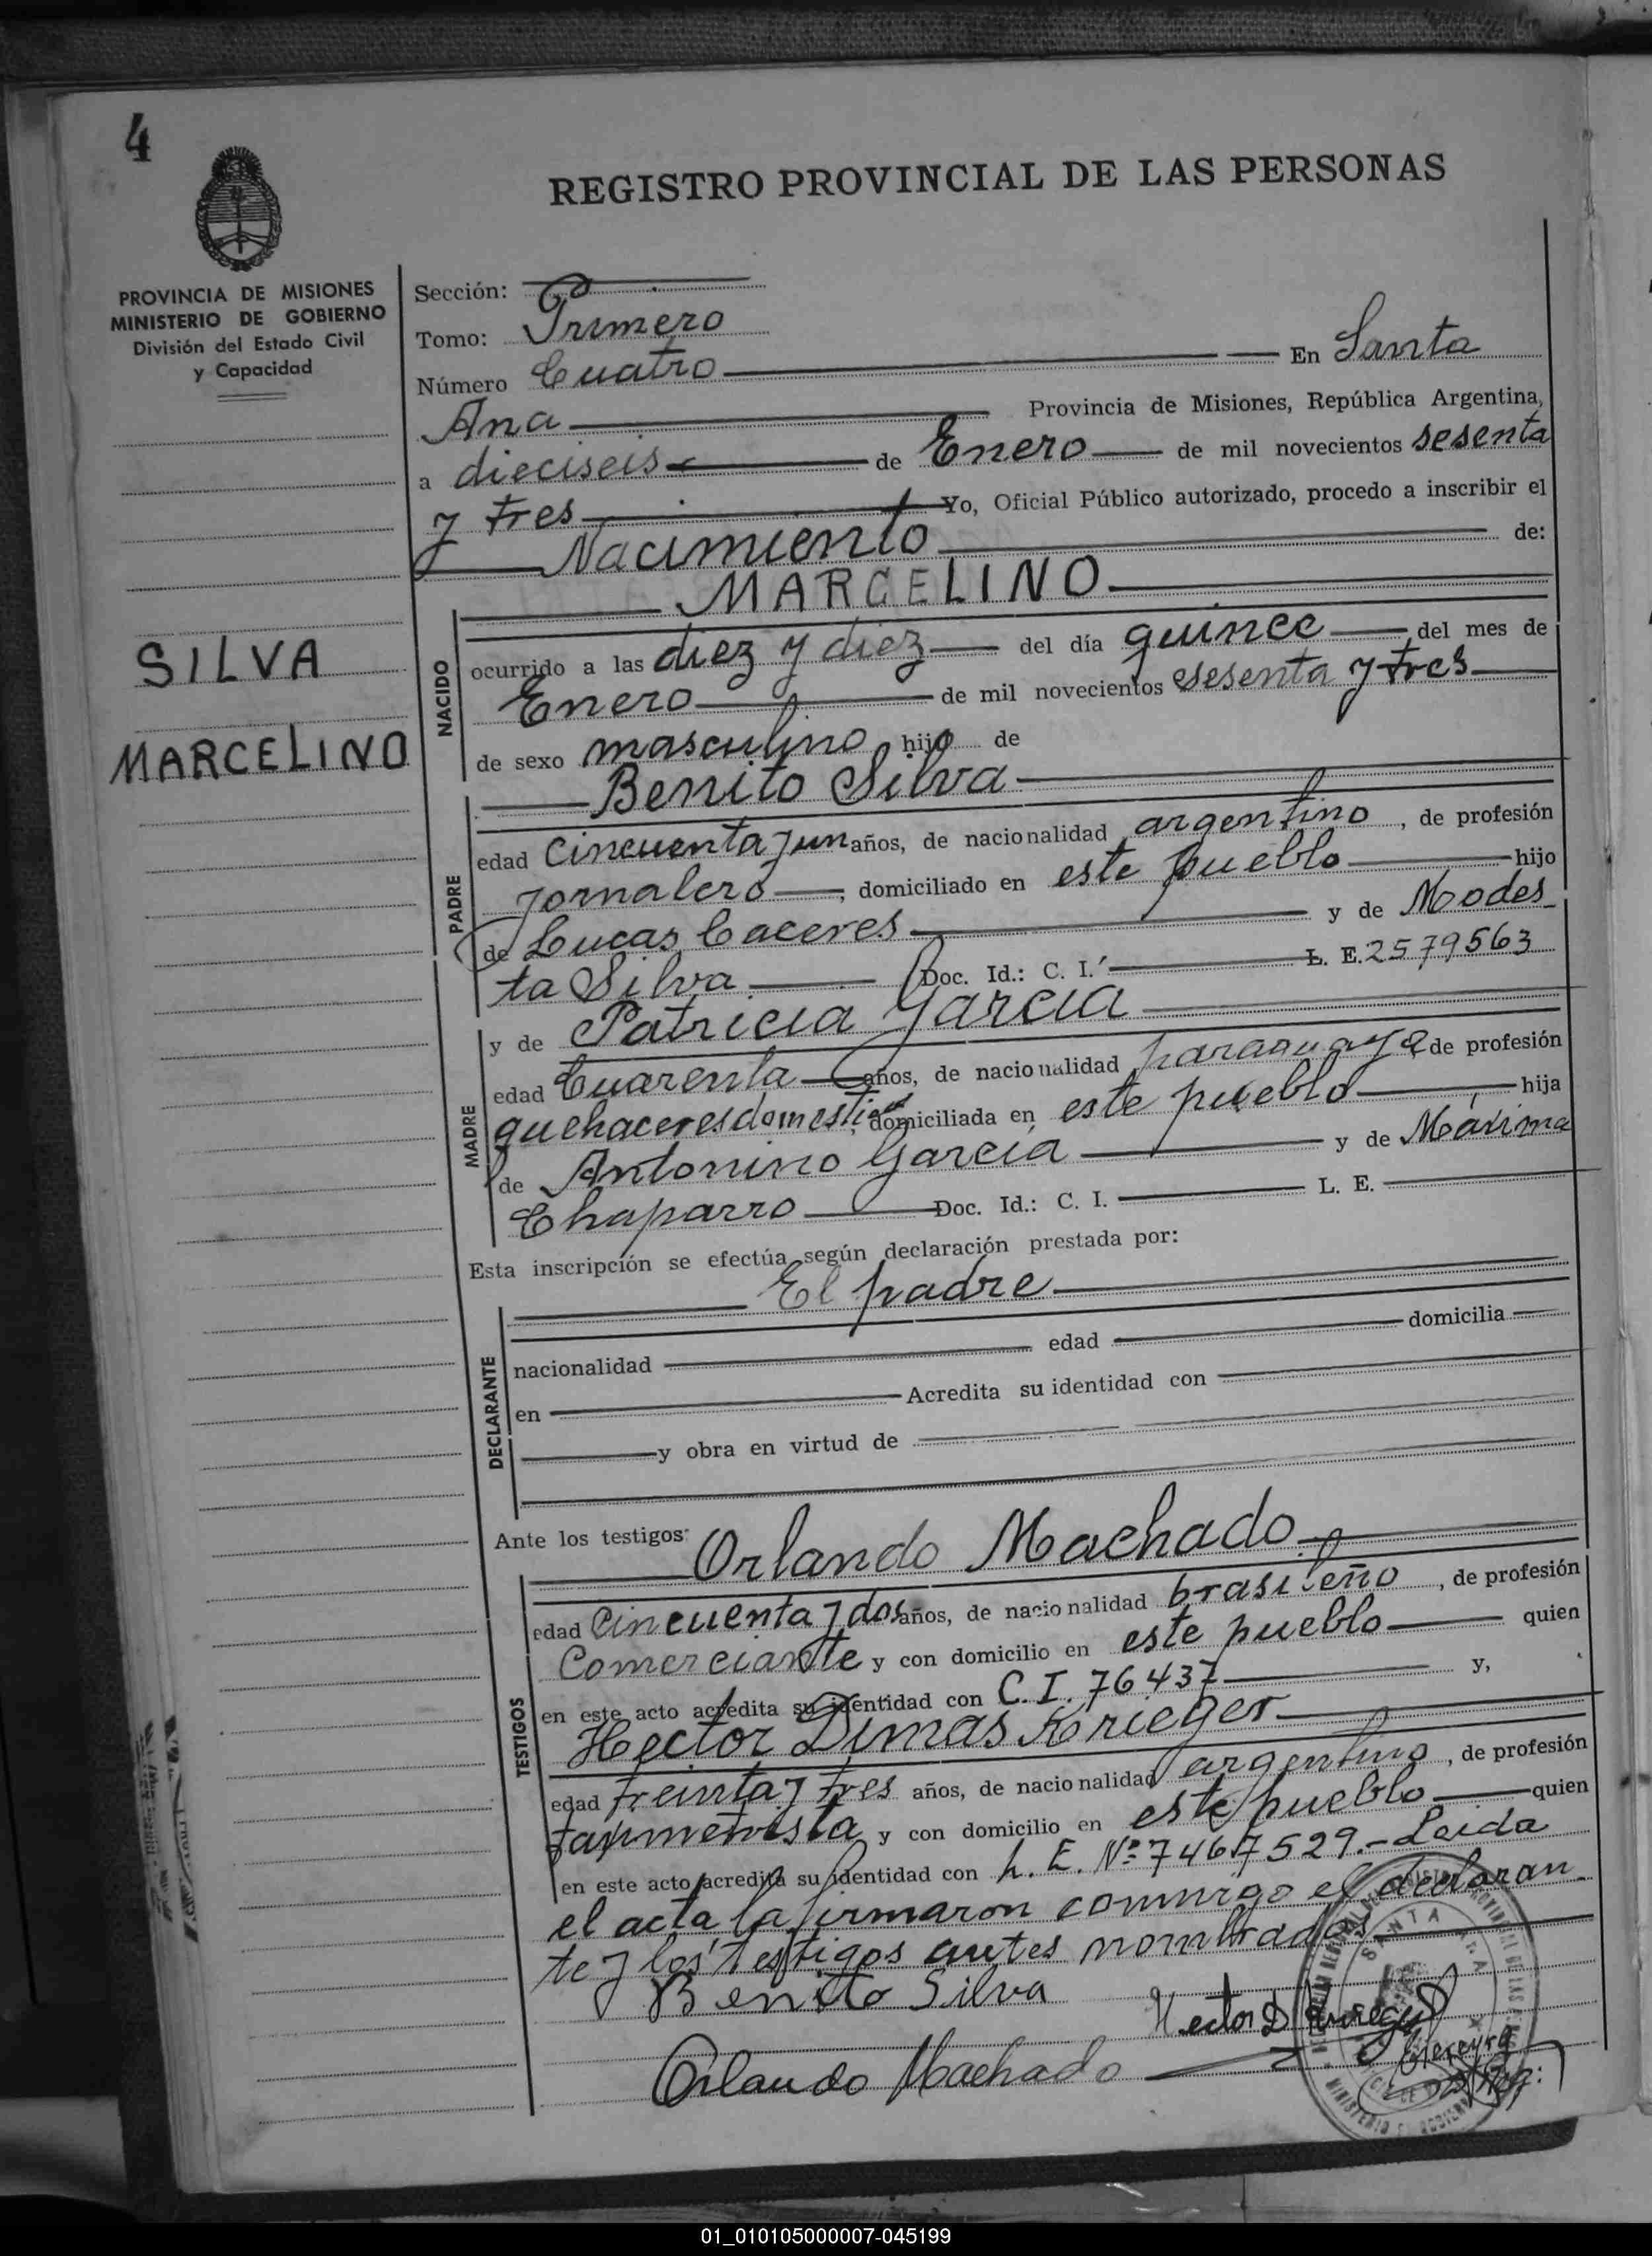 4
REGISTRO PROVINCIAL DE LAS PERSONAS
PROVINCIA DE MISIONES
MINISTERIO DE GOBIERNO
División del Estado Civil
y Capacidad
SILVA
MARCELINO
Sección:
Tomo: Primero
Número Cuatro En Santa
Ana Provincia de Misiones, República Argentina,
a dieciseis de Enero de mil novecientos sesenta
y tres Yo, Oficial Público autorizado, procedo a inscribir el
Nacimiento de:
MARCELINO
NACIDO
ocurrido a las diez y diez del día quince del mes de
Enero de mil novecientos sesenta y tres
de sexo masculino hijo de
Benito Silva
PADRE
edad Cincuenta y un años, de nacionalidad argentino, de profesión
jornalero, domiciliado en este pueblo hijo
de Lucas Caceres y de Modes
ta Silva Doc. Id.: C. I. L. E. 2579563
y de Patricia Garcia
MADRE
edad Cuarenta años, de nacionalidad paraguaya de profesión
quehaceres domesticos, domiciliada en este pueblo hija
de Antonino García y de Máxima
Chaparro Doc. Id.: C. I. L. E.
Esta inscripción se efectúa según declaración prestada por:
El padre
DECLARANTE
nacionalidad edad domicilia
en Acredita su identidad con
y obra en virtud de
Ante los testigos: Orlando Machado
TESTIGOS
edad Cincuenta y dos años, de nacionalidad brasileño, de profesión
Comerciante y con domicilio en este pueblo quien
en este acto acredita su identidad con C. I. 76437 y,
Hector Dimas Krieger
edad treinta y tres años, de nacionalidad argentino, de profesión
y con domicilio en este pueblo quien
en este acto acredita su identidad con L. E. Nº 7467529.- Leida
el acta la firmaron conmigo el declaran
te y los testigos antes nombrados
Benito Silva
Hector D Krieger
Orlando Machado
SANTA ANA
01_010105000007-045199